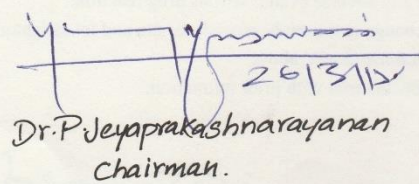 26/3/15
Dr. P. Jeyaprakashnarayanan
Chairman.